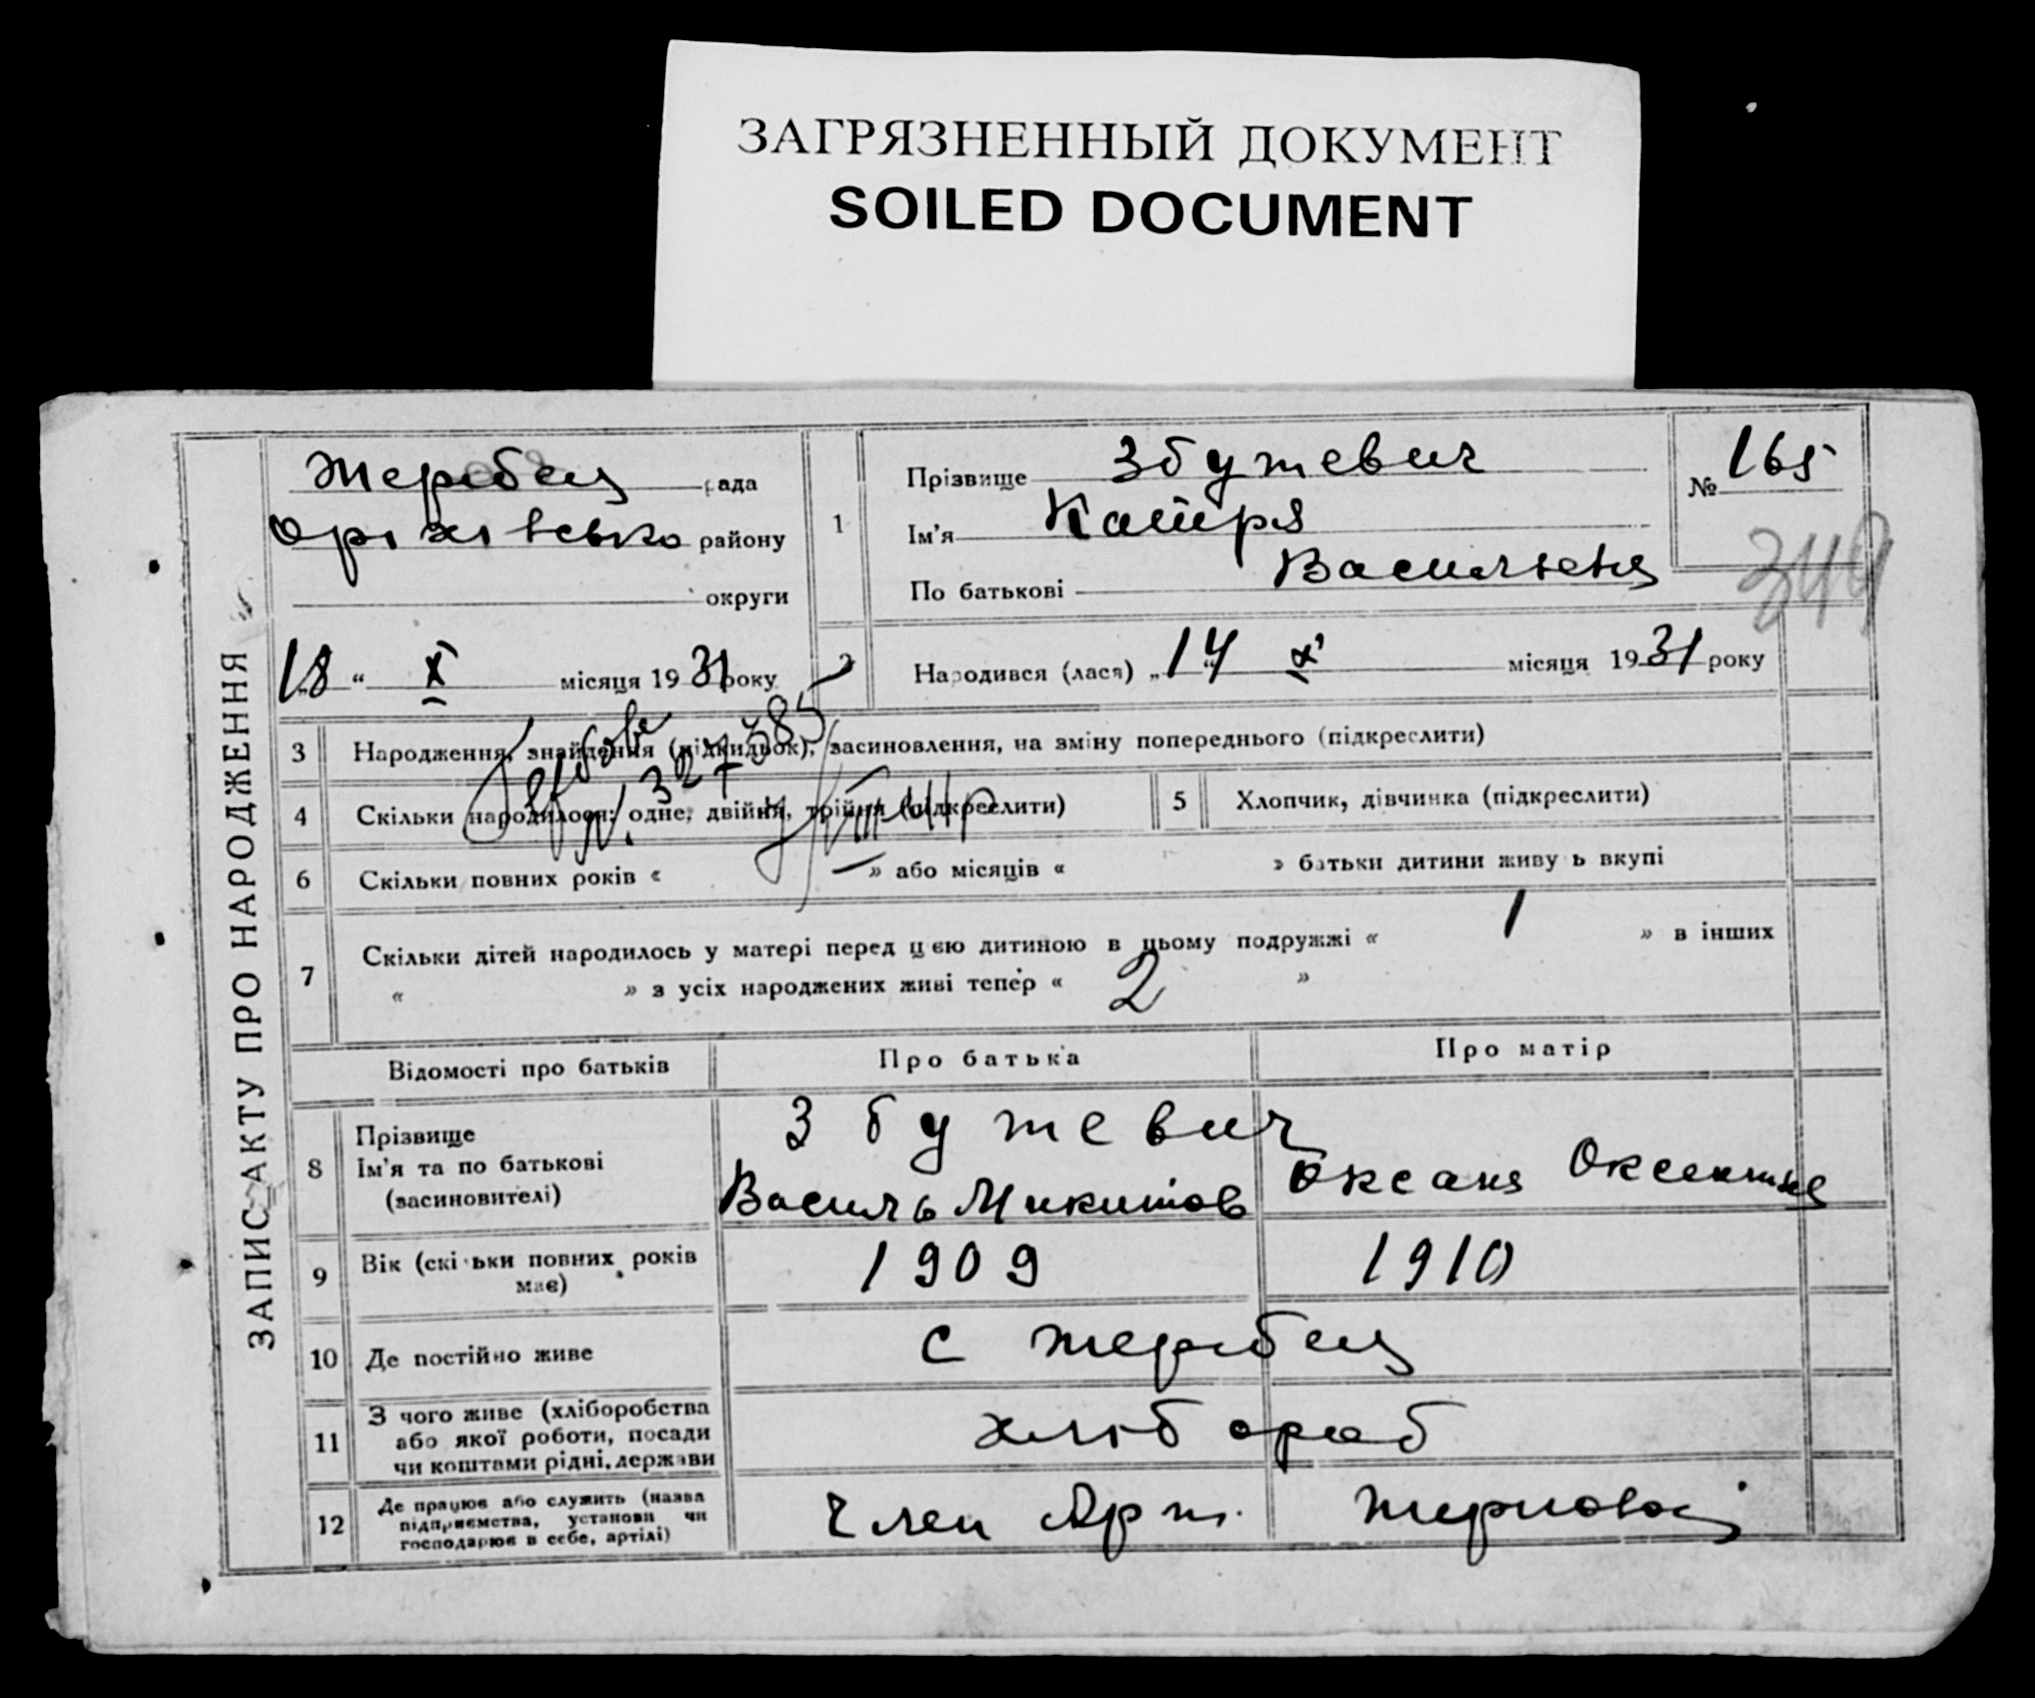 ЗАГРЯЗНЕННЫЙ ДОКУМЕНТ
SOILED DOCUMENT
ЗАПИС АКТУ ПРО НАРОДЖЕННЯ
Жеребец рада
Оріхівсько району
округи
18 " X місяця 1931 року
1
Прізвище Збутевич
Ім'я Катеря
По батькові Васильевня
№ 165
349
2 Народився (лася) „14 " X місяця 1931 року
3 Народження, знайдення (підкидьок), засиновлення, на зміну попереднього (підкреслити)
N. 327385
4 Скільки народилося: одне, двійня, трійня (підкреслити)
5 Хлопчик, дівчинка (підкреслити)
6 Скільки повних років « — » або місяців « » батьки дитини живуть вкупі
7 Скільки дітей народилось у матері перед цією дитиною в цьому подружжі « 1 » в інших
« » з усіх народжених живі тепер « 2 »
Відомості про батьків Про батька Про матір
8 Прізвище
Ім'я та по батькові
(засиновителі)
Збутевич
Василь Микитов Оксаня
9 Вік (скільки повних років
має)
1909 1910
10 Де постійно живе с Жеребец
11 З чого живе (хліборобства
або якої роботи, посади
чи коштами рідні, держави
хлібороб
12 Де працює або служить (назва
підприємства, установи чи
господарює в себе, артілі)
Член Арт.